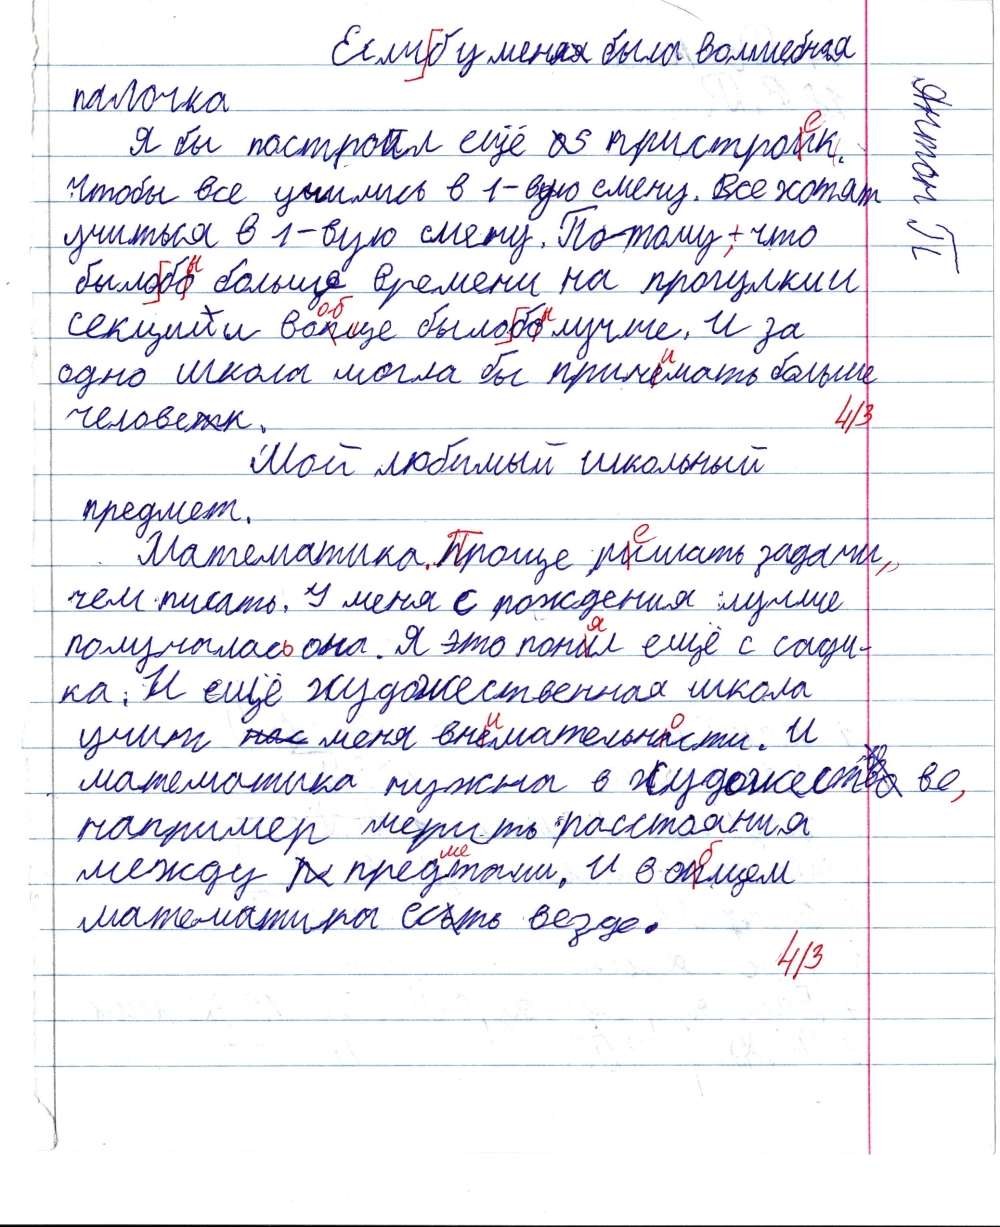 Если бу меня была волшебная
палочка
Я бы построил ещё 25 пристроек.
Чтобы все учились в 1-вую смену. Все хотят
учиться в 1-вую смену. Потому, что
былобы больше времени на прогулкии
секции и вопще былобы лучше. И за
одно школа могла бы принимать больше
человек.
4/3
Мой любимый школьный
предмет.
Математика. Проще решать задачи,
чем писать. У меня с рождения лучше
получалась она. Я это понял ещё с сади-
ка. И ещё художественная школа
учит нас меня внимательности. И
математика нужна в художестве,
например мерить расстояния
между предметами. И в общем
математика есть везде.
4/3
Антон П